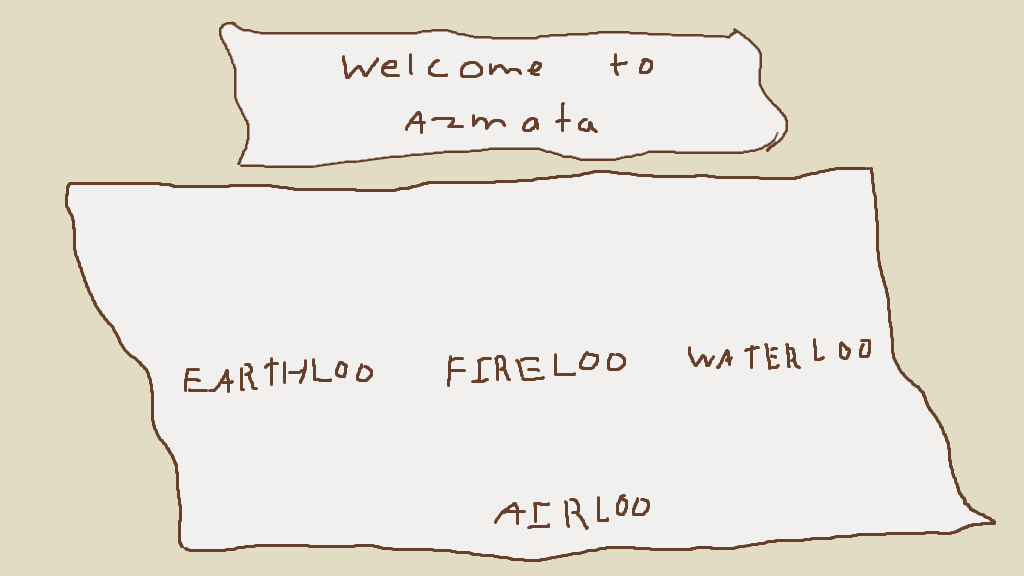 Welcome to
Azmata
EARTHLOO FIRELOO WATERLOO
AIRLOO